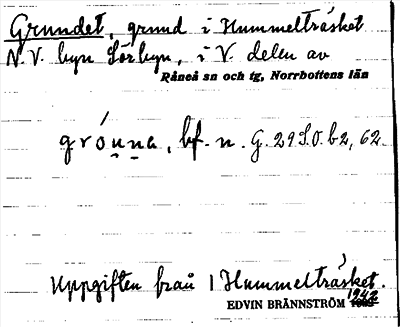 Grundet, grund i Hummelträsket
N.V. byn Sörbyn, i V. delen av
Råneå sn och tg, Norrbottens län
gróṇṇa, bf. n. G. 29 S.O. b2, 62.
Uppgiften från 1 Hummelträsket.
1942
EDVIN BRÄNNSTRÖM